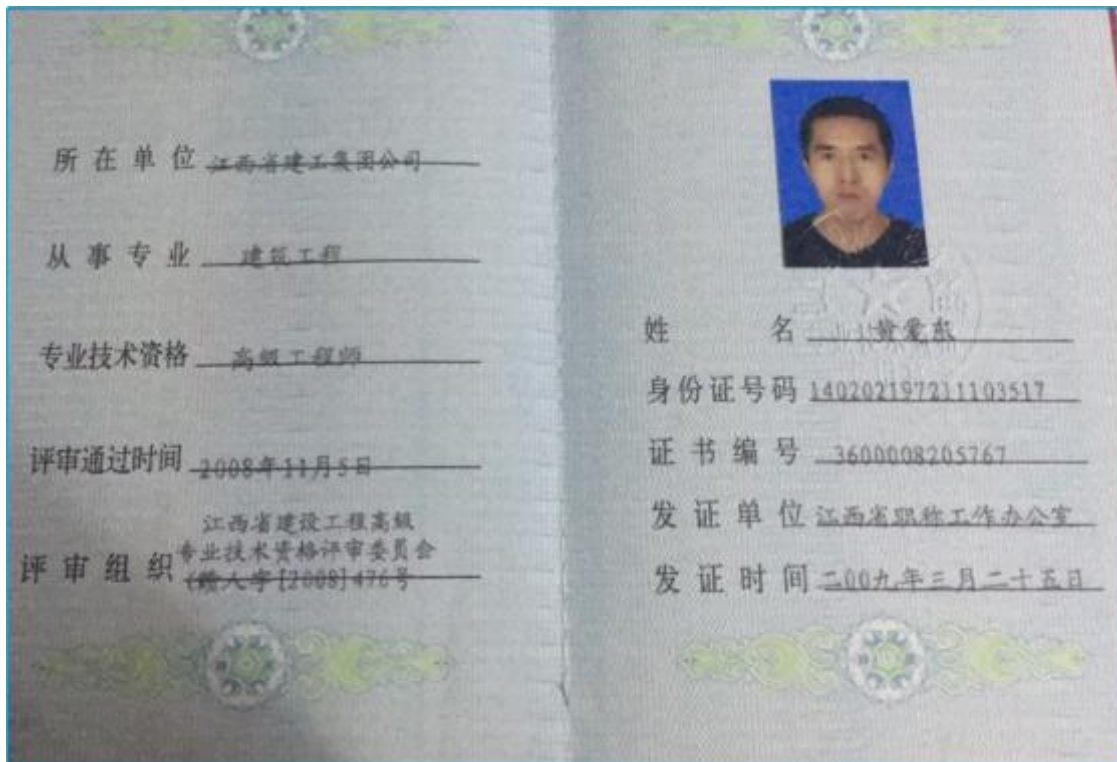 所在单位 江西省建工集团公司
从事专业 建筑工程
专业技术资格 高级工程师
评审通过时间 2008年11月5日
江西省建设工程高级
专业技术资格评审委员会
评审组织 (赣人字[2008]476号
姓名 黄爱东
身份证号码 140202197211103517
证书编号 3600008205767
发证单位 江西省职称工作办公室
发证时间 二00九年三月二十五日